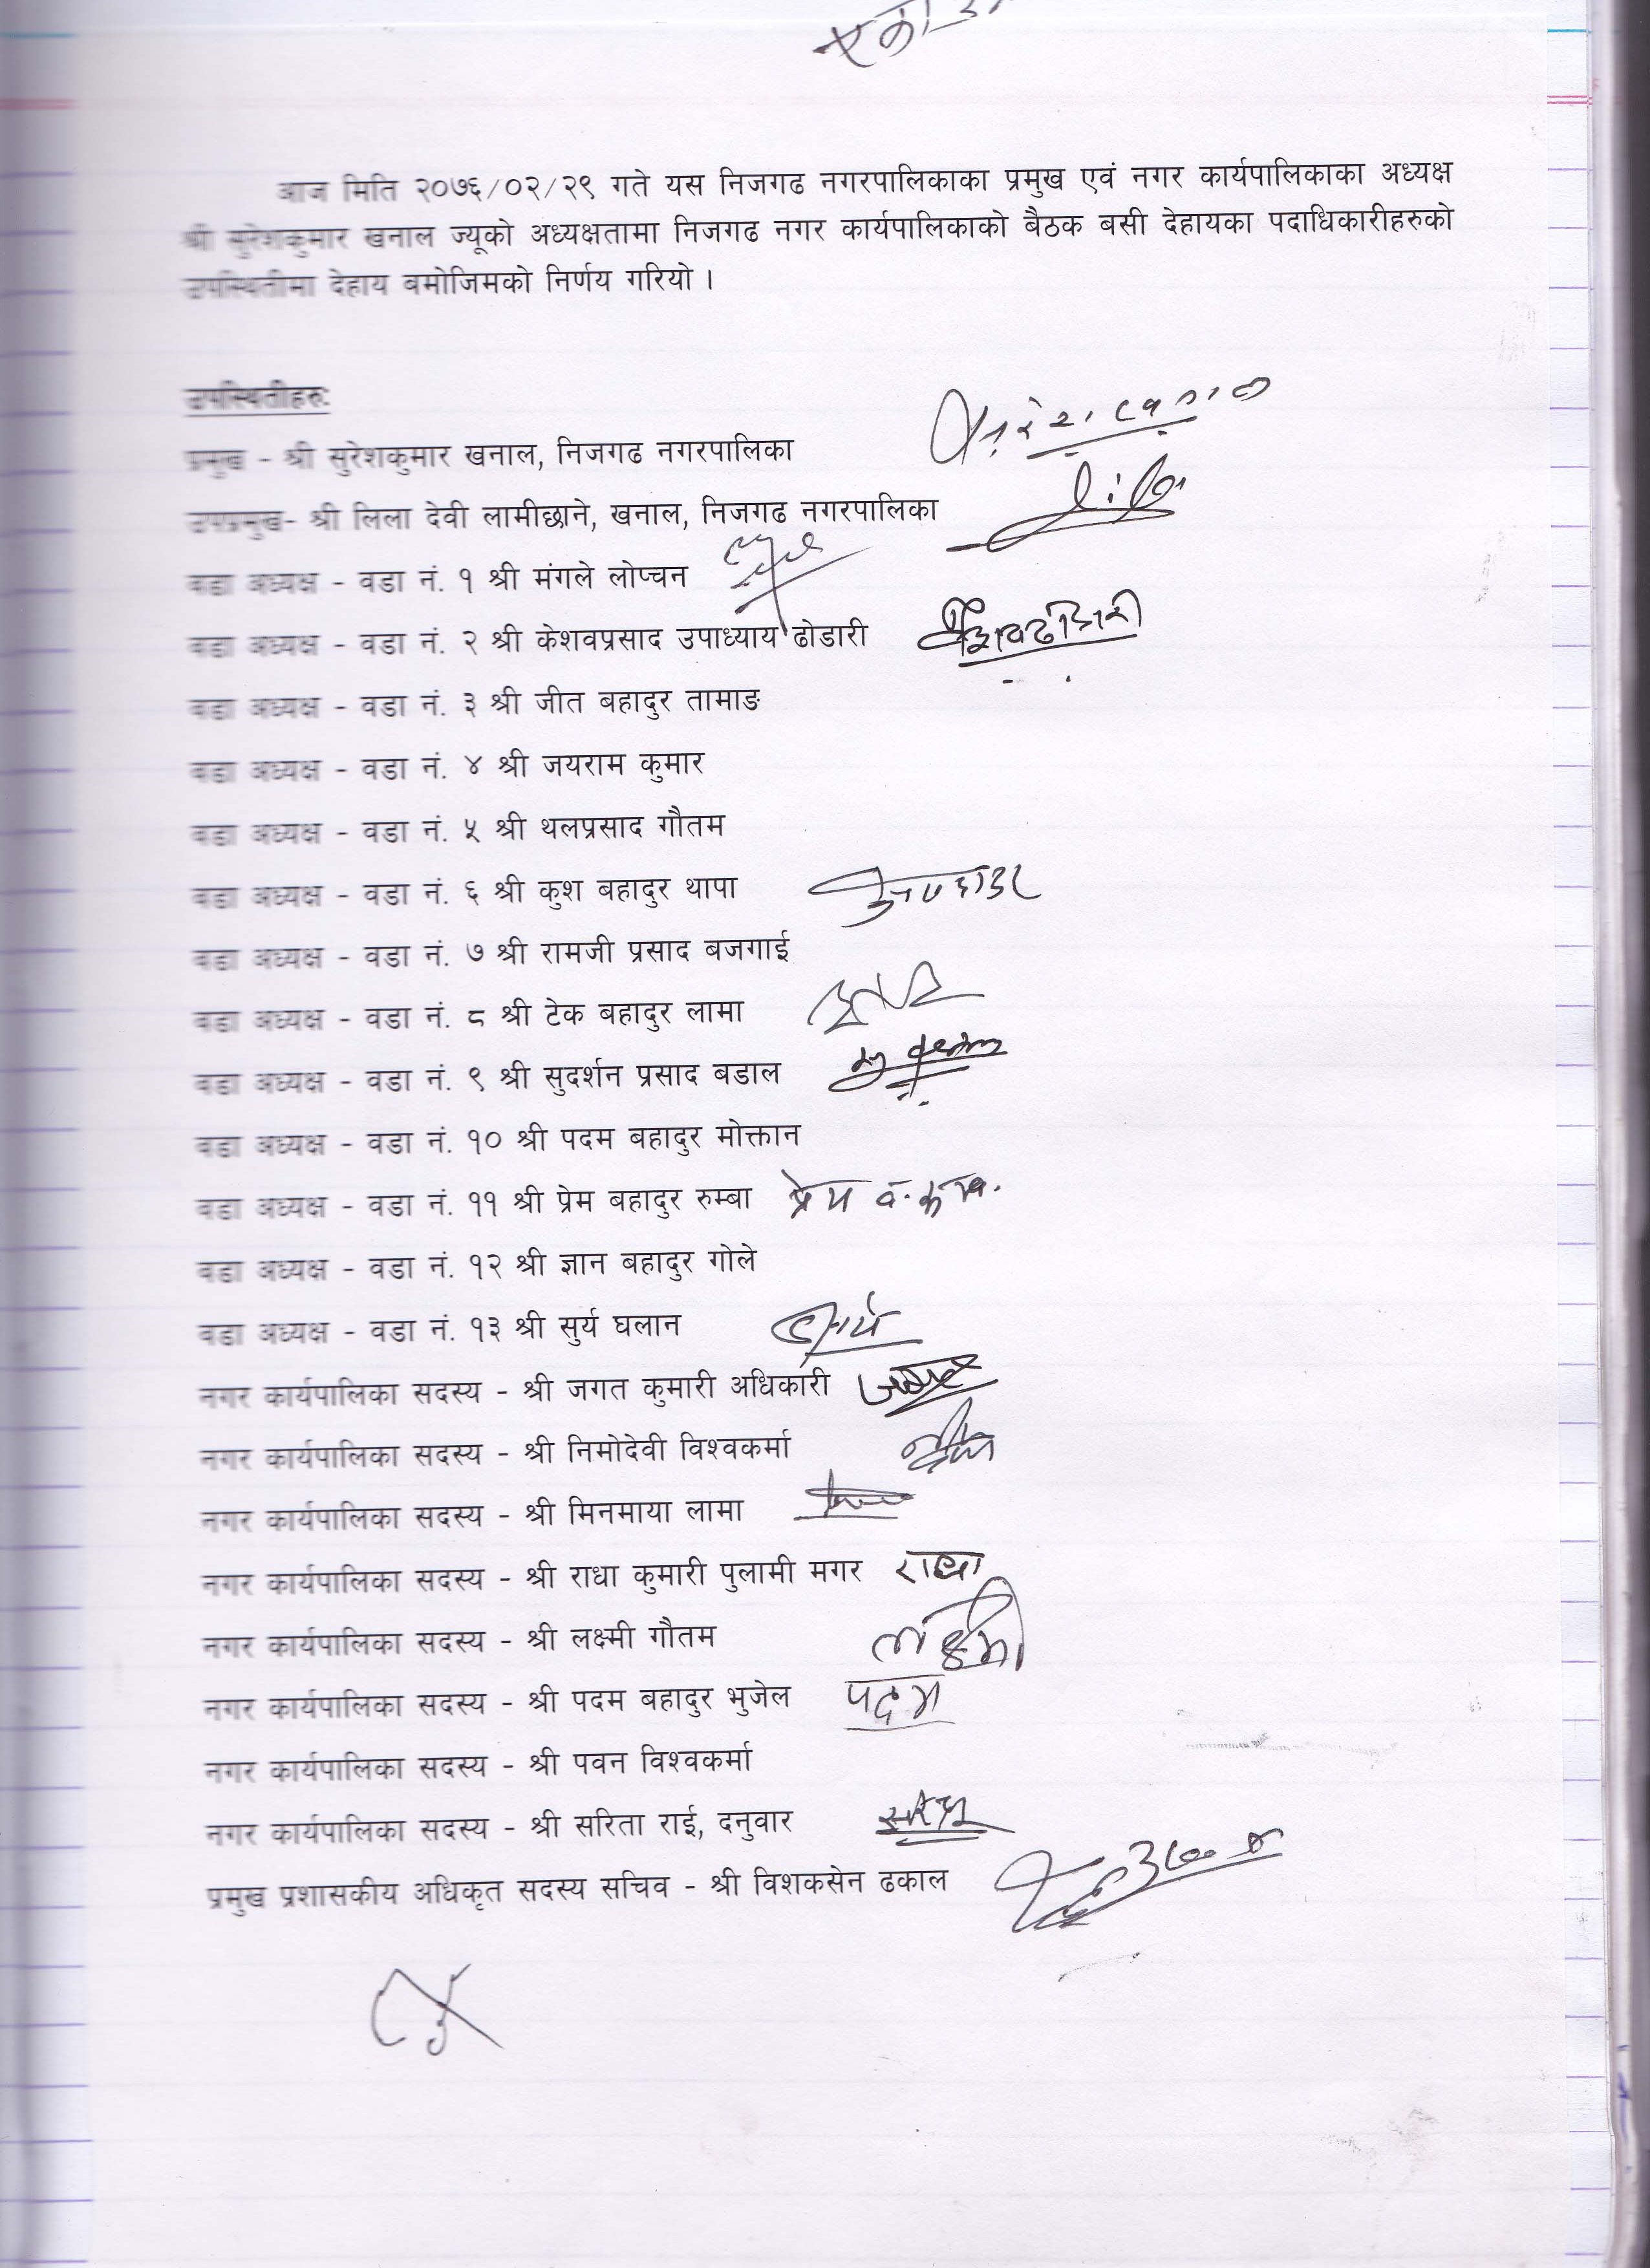 आज मिति २०७६/०२/२९ गते यस निजगढ नगरपालिकाका प्रमुख एवं नगर कार्यपालिकाका अध्यक्ष
श्री सुरेशकुमार खनाल ज्यूको अध्यक्षतामा निजगढ नगर कार्यपालिकाको बैठक बसी देहायका पदाधिकारीहरुको
उपस्थितीमा देहाय बमोजिमको निर्णय गरियो ।
उपस्थितीहरु:
प्रमुख - श्री सुरेशकुमार खनाल, निजगढ नगरपालिका
उपप्रमुख- श्री लिला देवी लामीछाने, खनाल, निजगढ नगरपालिका
वडा अध्यक्ष - वडा नं. १ श्री मंगले लोप्चन
वडा अध्यक्ष - वडा नं. २ श्री केशवप्रसाद उपाध्याय ढोडारी
वडा अध्यक्ष - वडा नं. ३ श्री जीत बहादुर तामाङ
वडा अध्यक्ष - वडा नं. ४ श्री जयराम कुमार
वडा अध्यक्ष - वडा नं. ५ श्री थलप्रसाद गौतम
वडा अध्यक्ष - वडा नं. ६ श्री कुश बहादुर थापा
वडा अध्यक्ष - वडा नं. ७ श्री रामजी प्रसाद बजगाई
वडा अध्यक्ष - वडा नं. ८ श्री टेक बहादुर लामा
वडा अध्यक्ष - वडा नं. ९ श्री सुदर्शन प्रसाद बडाल
वडा अध्यक्ष - वडा नं. १० श्री पदम बहादुर मोक्तान
वडा अध्यक्ष - वडा नं. ११ श्री प्रेम बहादुर रुम्बा प्रेम
वडा अध्यक्ष - वडा नं. १२ श्री ज्ञान बहादुर गोले
वडा अध्यक्ष - वडा नं. १३ श्री सुर्य घलान
नगर कार्यपालिका सदस्य - श्री जगत कुमारी अधिकारी
नगर कार्यपालिका सदस्य - श्री निमोदेवी विश्वकर्मा
नगर कार्यपालिका सदस्य - श्री मिनमाया लामा
नगर कार्यपालिका सदस्य - श्री राधा कुमारी पुलामी मगर राधा
नगर कार्यपालिका सदस्य - श्री लक्ष्मी गौतम लक्ष्मी
नगर कार्यपालिका सदस्य - श्री पदम बहादुर भुजेल पदम
नगर कार्यपालिका सदस्य - श्री पवन विश्वकर्मा
नगर कार्यपालिका सदस्य - श्री सरिता राई, दनुवार
प्रमुख प्रशासकीय अधिकृत सदस्य सचिव - श्री विशकसेन ढकाल